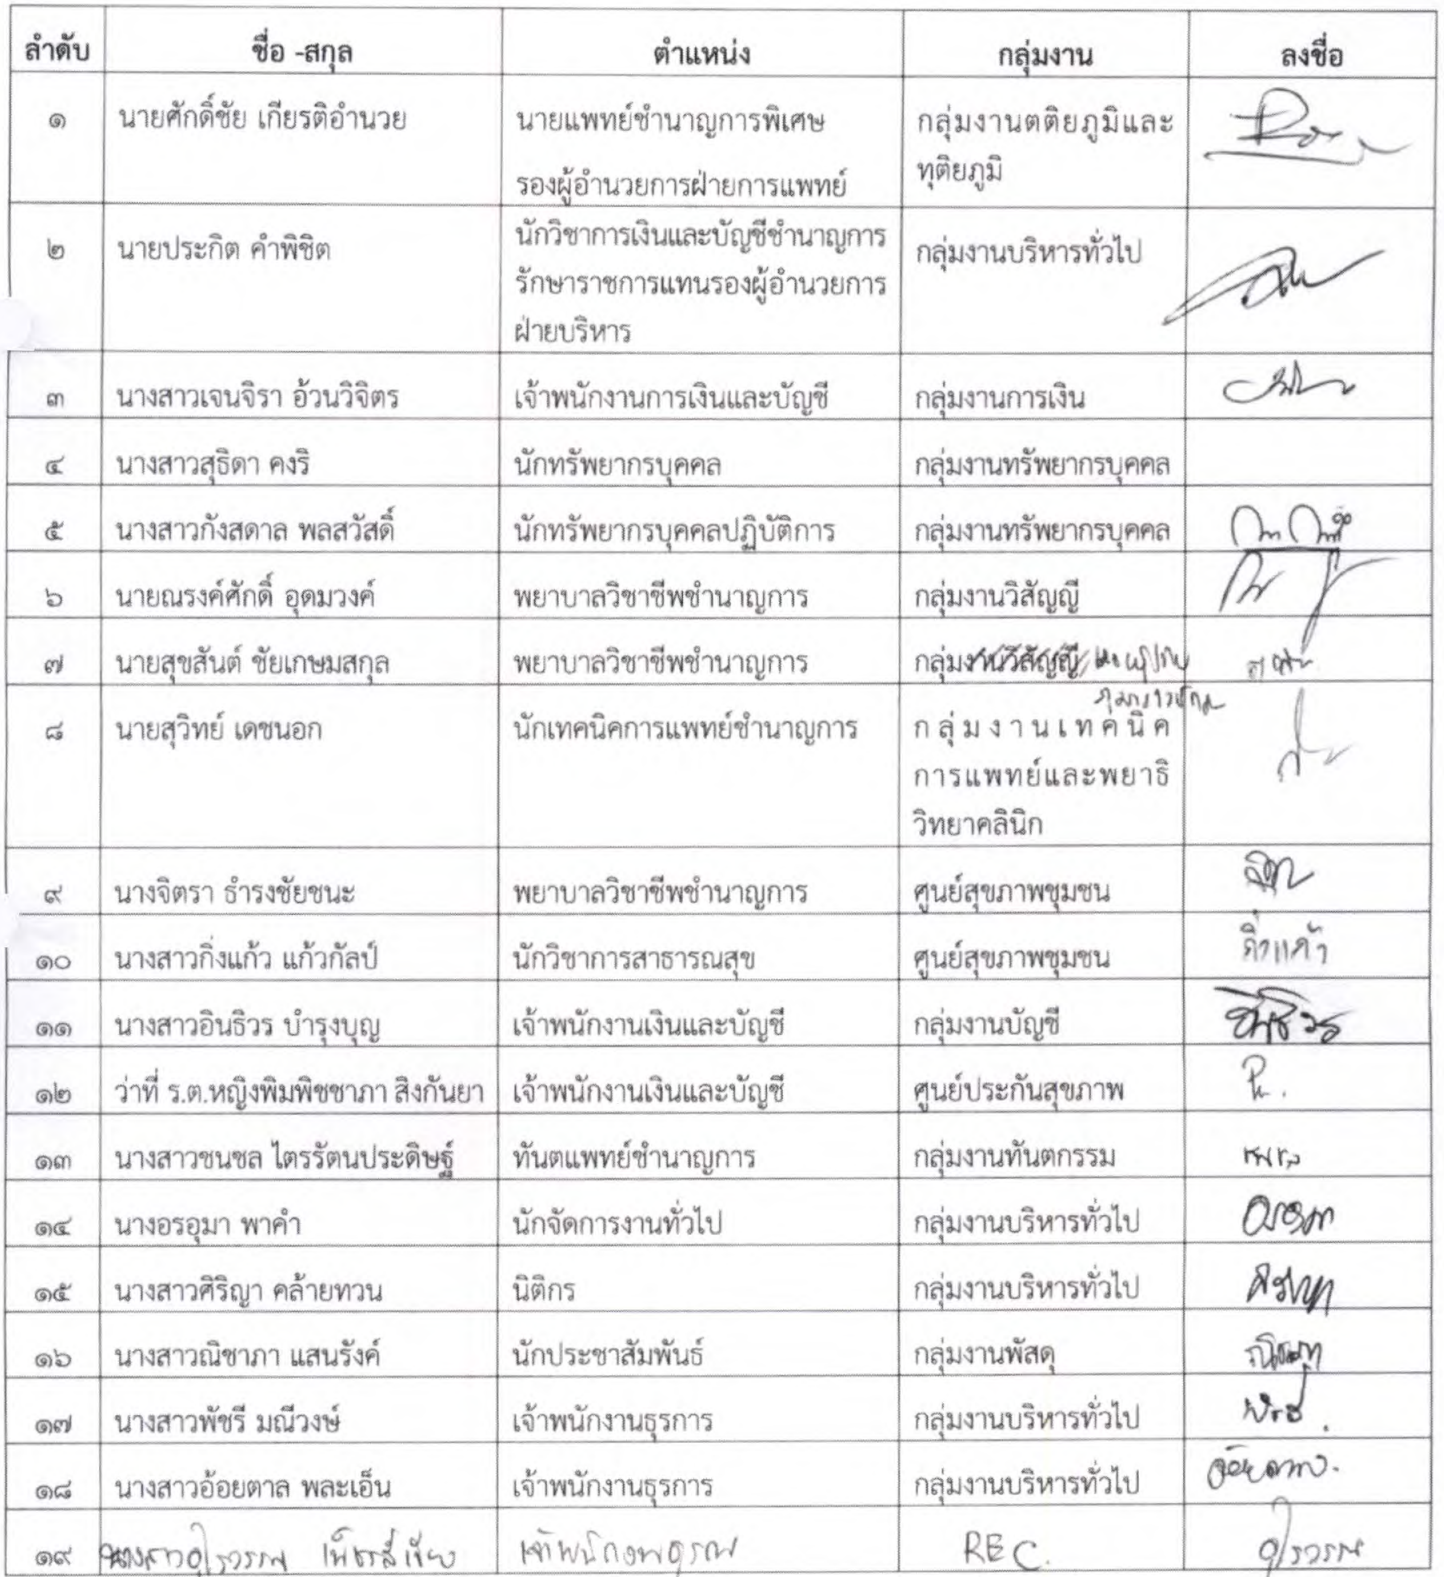 ลำดับ ชื่อ -สกุล ตำแหน่ง กลุ่มงาน ลงชื่อ
๑ นายศักดิ์ชัย เกียรติอำนวย นายแพทย์ชำนาญการพิเศษ กลุ่มงานตติยภูมิและ
รองผู้อำนวยการฝ่ายการแพทย์ ทุติยภูมิ
๒ นายประกิต คำพิชิต นักวิชาการเงินและบัญชีชำนาญการ กลุ่มงานบริหารทั่วไป
รักษาราชการแทนรองผู้อำนวยการ
ฝ่ายบริหาร
๓ นางสาวเจนจิรา อ้วนวิจิตร เจ้าพนักงานการเงินและบัญชี กลุ่มงานการเงิน
๔ นางสาวสุธิดา คงริ นักทรัพยากรบุคคล กลุ่มงานทรัพยากรบุคคล
๕ นางสาวกังสดาล พลสวัสดิ์ นักทรัพยากรบุคคลปฏิบัติการ กลุ่มงานทรัพยากรบุคคล
๖ นายณรงค์ศักดิ์ อุดมวงค์ พยาบาลวิชาชีพชำนาญการ กลุ่มงานวิสัญญี
๗ นายสุขสันต์ ชัยเกษมสกุล พยาบาลวิชาชีพชำนาญการ กลุ่มงานวิสัญญี
๘ นายสุวิทย์ เดชนอก นักเทคนิคการแพทย์ชำนาญการ กลุ่มงานเทคนิค
การแพทย์และพยาธิ
วิทยาคลินิก
๙ นางจิตรา ธำรงชัยชนะ พยาบาลวิชาชีพชำนาญการ ศูนย์สุขภาพชุมชน
๑๐ นางสาวกิ่งแก้ว แก้วกัลป์ นักวิชาการสาธารณสุข ศูนย์สุขภาพชุมชน กิ่งแก้ว
๑๑ นางสาวอินธิวร บำรุงบุญ เจ้าพนักงานเงินและบัญชี กลุ่มงานบัญชี อินธิวร
๑๒ ว่าที่ ร.ต.หญิงพิมพิชชาภา สิงกันยา เจ้าพนักงานเงินและบัญชี ศูนย์ประกันสุขภาพ
๑๓ นางสาวชนชล ไตรรัตนประดิษฐ์ ทันตแพทย์ชำนาญการ กลุ่มงานทันตกรรม ชนชล
๑๔ นางอรอุมา พาคำ นักจัดการงานทั่วไป กลุ่มงานบริหารทั่วไป อรอุมา
๑๕ นางสาวศิริญา คล้ายทวน นิติกร กลุ่มงานบริหารทั่วไป ศิริญา
๑๖ นางสาวณิชาภา แสนรังค์ นักประชาสัมพันธ์ กลุ่มงานพัสดุ ณิชาภา
๑๗ นางสาวพัชรี มณีวงษ์ เจ้าพนักงานธุรการ กลุ่มงานบริหารทั่วไป พัชรี
๑๘ นางสาวอ้อยตาล พละเอ็น เจ้าพนักงานธุรการ กลุ่มงานบริหารทั่วไป อ้อยตาล
๑๙ นางสาวอุไรวรรณ เจ้าพนักงานธุรการ REC. อุไรวรรณ